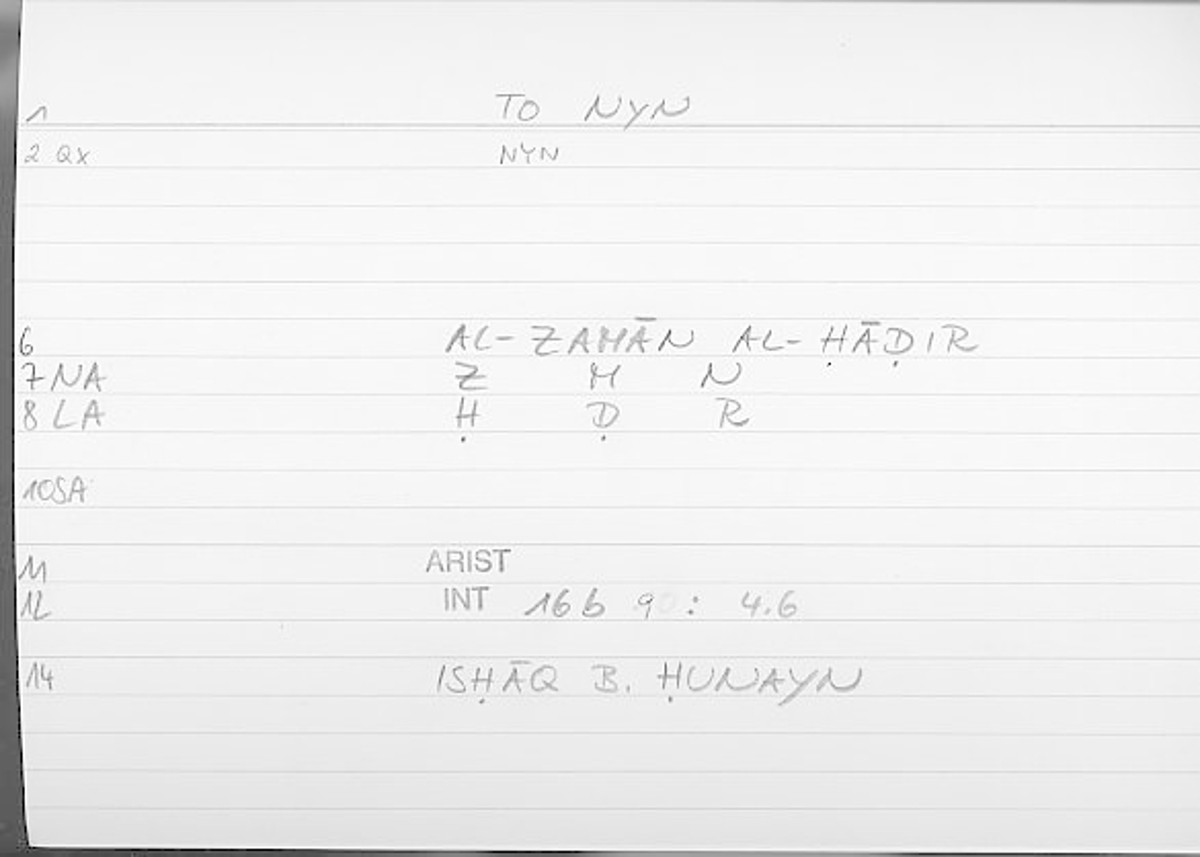 1 TO NYN
2 QX NYN
6 AL-ZAMĀN AL-ḤĀḌIR
7 NA Z M N
8 LA Ḥ Ḍ R
10SA
11 ARIST
12 INT 16b 9 : 4.6
14 ISḤĀQ B. ḤUNAYN